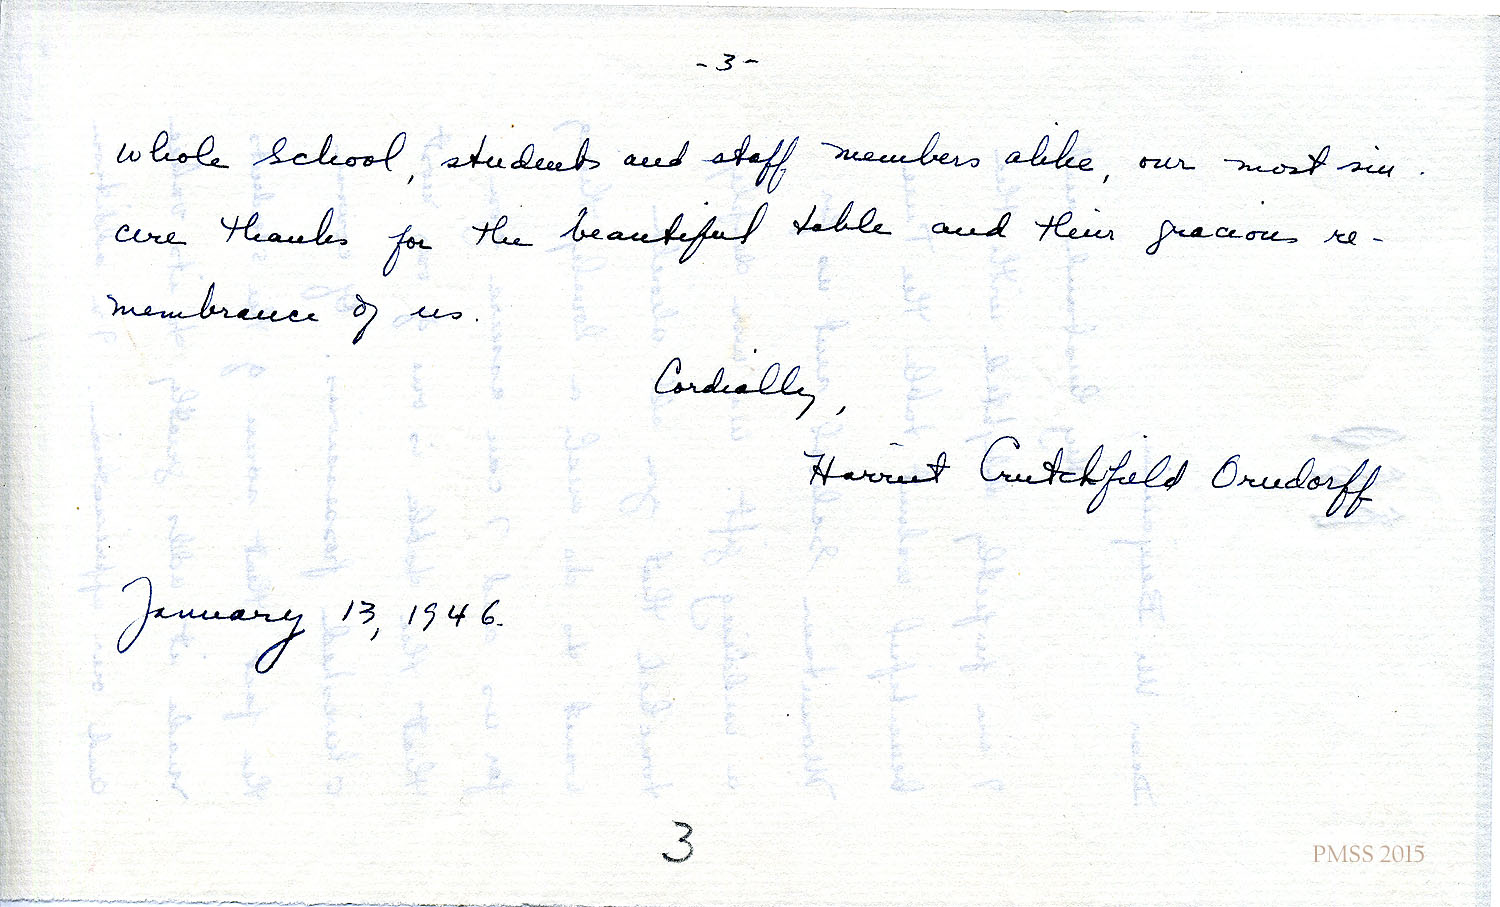 -3-
whole school, students and staff members alike, our most sin-
cere thanks for the beautiful table and their gracious re-
membrance of us.
Cordially,
Harriet Crutchfield Orndorff
January 13, 1946.
3
PMSS 2015